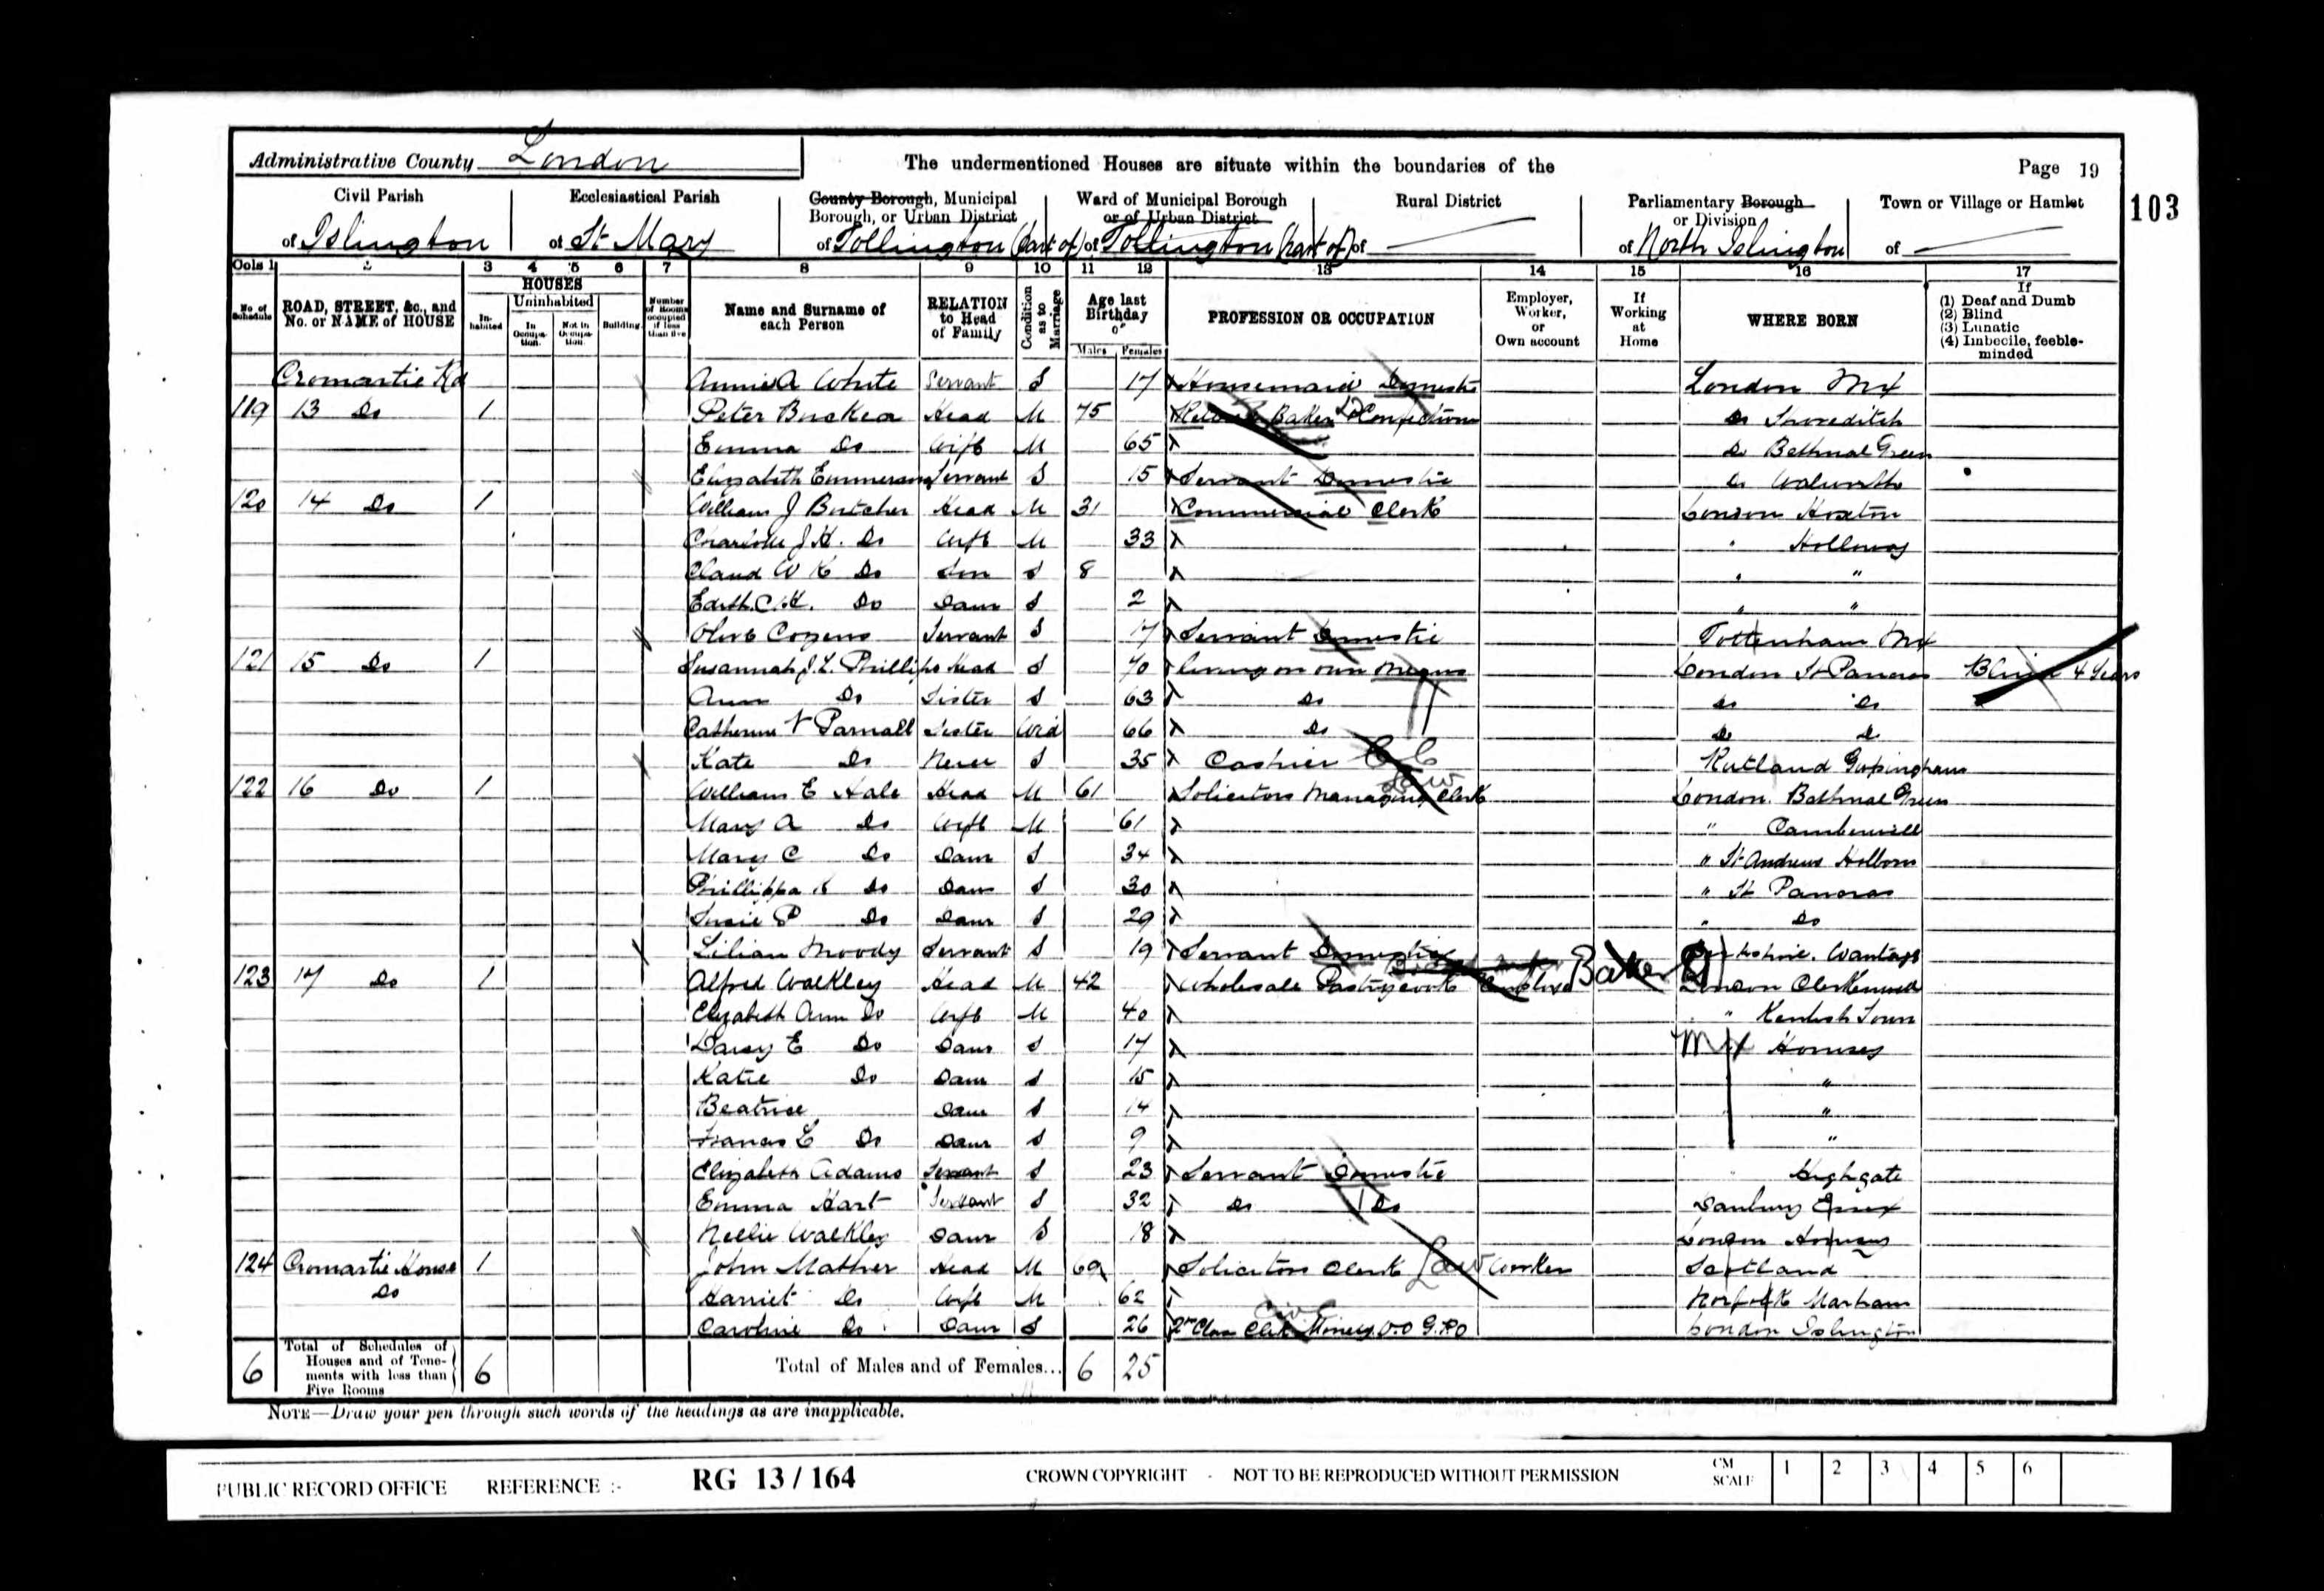 Administrative County London The undermentioned Houses are situate within the boundaries of the Page 19
103
Civil Parish Ecclesiastical Parish County Borough, Municipal Borough, or Urban District Ward of Municipal Borough or of Urban District Rural District Parliamentary Borough or Division Town or Village or Hamlet
of Islington of St Mary of Tollington (part of) of Tollington (part of) of of North Islington of
Cols 1 2 3 4 5 6 7 8 9 10 11 12 13 14 15 16 17
No of Schedule ROAD, STREET, &c., and No. or NAME of HOUSE HOUSES Inhabited Uninhabited In Occupation. Not in Occupation. Building. Number of Rooms occupied if less than five Name and Surname of each Person RELATION to Head of Family Condition as to Marriage Age last Birthday of Males Females PROFESSION OR OCCUPATION Employer, Worker, or Own account If Working at Home WHERE BORN If (1) Deaf and Dumb (2) Blind (3) Lunatic (4) Imbecile, feeble-minded
Cromartie Rd Annie A White Servant S 17 Housemaid Domestic London Mx
119 13 Do 1 Peter Head M 75 Baker Do Shoreditch
Emma Do Wife M 65 Do Bethnal Green
Elizabeth Emmerson Servant S 15 Servant Domestic Do Walworth
120 14 Do 1 William J Butcher Head M 31 Commercial Clerk London Hoxton
Charlotte J H. Do Wife M 33 " Holloway
Claud W K Do Son S 8 " "
Edith C. K. Do Daur S 2 " "
Olive Cozens Servant S 17 Servant Domestic Tottenham Mx
121 15 Do 1 Susannah J. L. Phillips Head S 70 Living on own means London St Pancras Blind 4 Years
Ann Do Sister S 63 Do Do Do
Catherine Parnall Sister Wid 66 Do Do Do
Kate Do Niece S 35 Cashier Rutland
122 16 Do 1 William E Hale Head M 61 Solicitors Managing Clerk Law London. Bethnal Green
Mary A Do Wife M 61 " Camberwell
Mary C Do Daur S 34 " St Andrews Holborn
Phillippa Do Daur S 30 " St Pancras
Susie P Do Daur S 29 " Do
Lilian Moody Servant S 19 Servant Domestic Berkshire. Wantage
123 17 Do 1 Alfred Walkley Head M 42 Wholesale Pastrycook Baker London Clerkenwell
Elizabeth Ann Do Wife M 40 " Kentish Town
Daisy E Do Daur S 17 Mx Hornsey
Katie Do Daur S 15 "
Beatrice Daur S 14 "
Frances L Do Daur S 9 "
Elizabeth Adams Servant S 23 Servant Domestic Highgate
Emma Hart Servant S 32 Do Do Danbury Essex
Nellie Walkley Daur S 18 London Hornsey
124 Cromartie House 1 John Mather Head M 69 Solicitors Clerk Law Worker Scotland
Do Harriet Do Wife M 62 Norfolk Marham
Caroline Do Daur S 26 2nd Class Clerk Money O.O G.P.O London Islington
6 Total of Schedules of Houses and of Tenements with less than Five Rooms 6 Total of Males and of Females... 6 25
NOTE—Draw your pen through such words of the headings as are inapplicable.
PUBLIC RECORD OFFICE REFERENCE :- RG 13 / 164 CROWN COPYRIGHT - NOT TO BE REPRODUCED WITHOUT PERMISSION CM SCALE 1 2 3 4 5 6